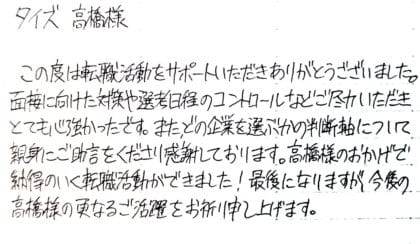 タイズ 高橋様
この度は転職活動をサポートいただきありがとうございました。
面接に向けた対策や選考日程のコントロールなどご尽力いただき
とても心強かったです。また、どの企業を選ぶかの判断軸について、
親身にご助言をくださり感謝しております。高橋様のおかげで、
納得のいく転職活動ができました！最後になりますが、今後の
高橋様の更なるご活躍をお祈り申し上げます。